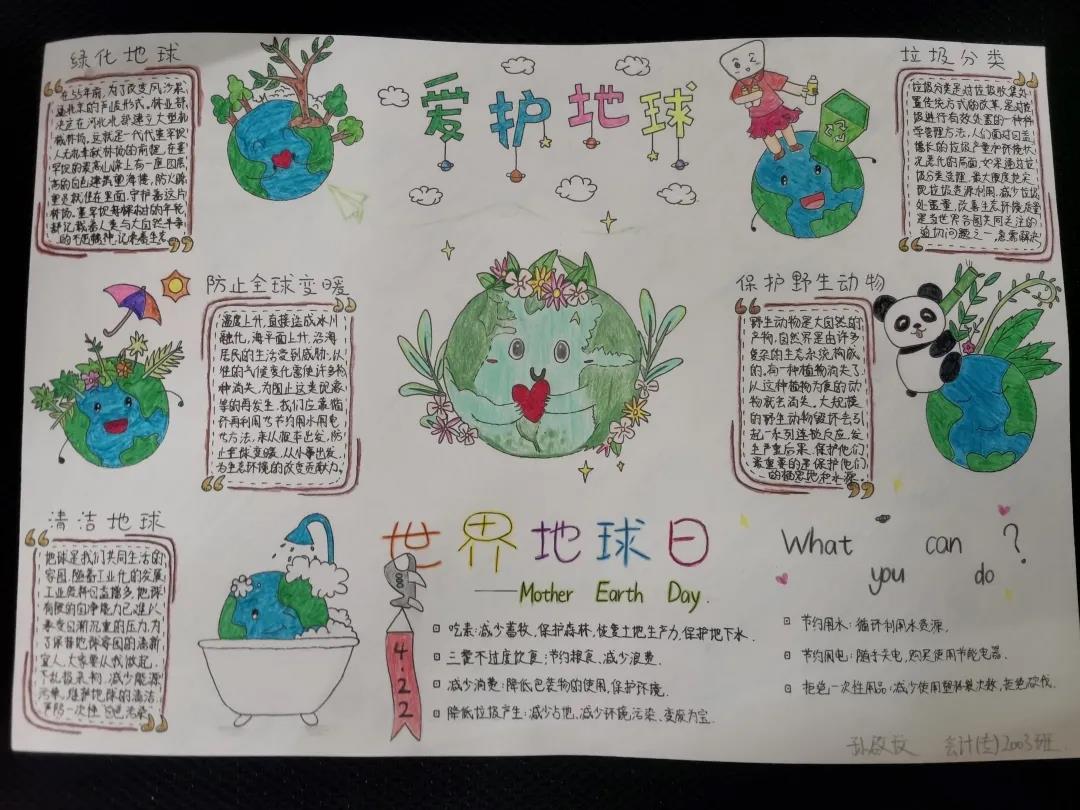 绿化地球
在55年前,为了改变风沙紧
逼北京的严峻形式。林业部
决定在河北北部建立大型机
械林场。这就是一代代塞罕坝
人无私奉献林场的前提,在塞
罕坝的最高山峰上有一座四层
高的白色建筑望海楼,防火瞭
望员就住在里面,守护着这片
林场。塞罕坝每棵树的年轮,
都记载着人类与大自然斗争
的不屈精神,记录着生态
爱护地球
垃圾分类
垃圾分类是对垃圾收集处
置传统方式的改革,是对垃
圾进行有效处置的一种科
学管理方法,人们面对日益
增长的垃圾产量和环境状
况恶化的局面,如果通过垃
圾分类管理,最大限度地实
现垃圾资源利用,减少垃圾
处置量,改善生态环境质量
是当世界各国共同关注的
迫切问题之一,急需解决
防止全球变暖
温度上升,直接造成冰川
融化,海平面上升,沿海
居民的生活受到威胁,从
性的气候变化需使许多物
种消失,为阻止这类现象
等的再发生,我们应遵循
循环再利用节约用水用电
方法,来从根本出发,防
止全球变暖,从小事出发,
为生态环境的改变贡献力。
保护野生动物
野生动物是大自然的
产物,自然界是由许多
复杂的生态系统构成
的。有一种植物消失了,
以这种植物为食的动
物就会消失。大规模
的野生动物毁坏会引
起一系列连锁反应,发
生严重后果,保护他们
最重要的是保护他们
的栖息地和水源。
清洁地球
地球是我们共同生活的
家园,随着工业化的发展
工业废料日益增多,地球
有限的自净能力已难以
承受日渐沉重的压力,为
了保持地球家园的清新
宜人,大家要从我做起,
不乱扔杂物,减少能源
污染,维护地球的清洁,
严防一次性白色污染
世界地球日
——Mother Earth Day.
4.22
吃素:减少畜牧,保护森林,恢复土地生产力,保护地下水.
三餐不过度饮食:节约粮食、减少浪费.
减少消费:降低包装物的使用,保护环境.
降低垃圾产生:减少占地,减少环境污染、变废为宝.
What can ?
you do
节约用水:循环利用水资源.
节约用电:随手关电,购买使用节能电器.
拒绝一次性用品:减少使用塑料袋次数,拒绝砍伐.
会计(专)2003班.